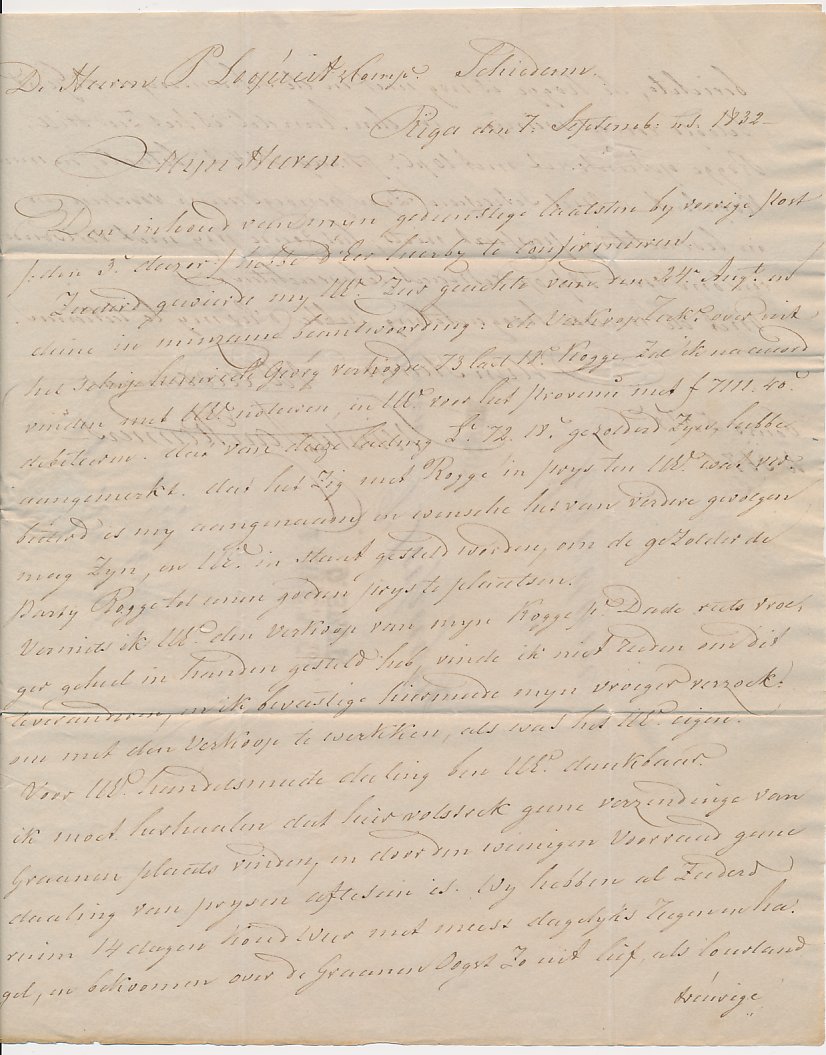 De Heeren P Loopuit & Comp. Schiedam.
Riga den 7. Septemb: ns. 1832
Mijn Heeren
Den inhoud van myn gedienstige laatsten by vorige Post
p. den 3. deezer p. heb d'Eer hierby te confirmeeren
Zeederd gewierde my UE. Zeer geachte van den 24. Aug. en
diene in minzame beantwoording. de Verkoop Zek. over uit
het schip Georg verkogte 23 last 18. Rogge Zal ik na accord
vinden met UE. noteeren, en UE. voor het Provenu met f 7111.40.
debiteeren. dat van deeze lading L. 72.18. gezolderd Zyn, hebbe
aangemerkt. dat het Zig met Rogge in prys ten UE. wat ver=
beeterd is my aangenaam, en wensche het van verdere gevolgen
mag Zyn, en UE. in staat gesteld worden, om de gezolderde
Party Rogge tot eenen goeden prys te plaatsen.
Vermits ik UE. den verkoop van myn Rogge p. Dade reets vroe,
ger geheel in handen gesteld heb, vinde ik niet reeden om dit
te veranderen, en ik bevestige hiermede myn vroeger verzoek.
om met den Verkoop te werkken, als was het UE. eigen.
Voor UE. handelsmeede deeling ben UE. dankbaar.
ik moet herhaalen dat hier volstrek geene verzendinge van
Graanen plaats vinden, en door den weinigen Voorraad geene
daaling van prysen aftesien is. Wy hebben al Zeederd
ruim 14 dagen koud Weer met meest dagelyks Regen en ha=
gel, en bekoomen over de Graanen Oogst Zo uit lief, als Courland
treurige